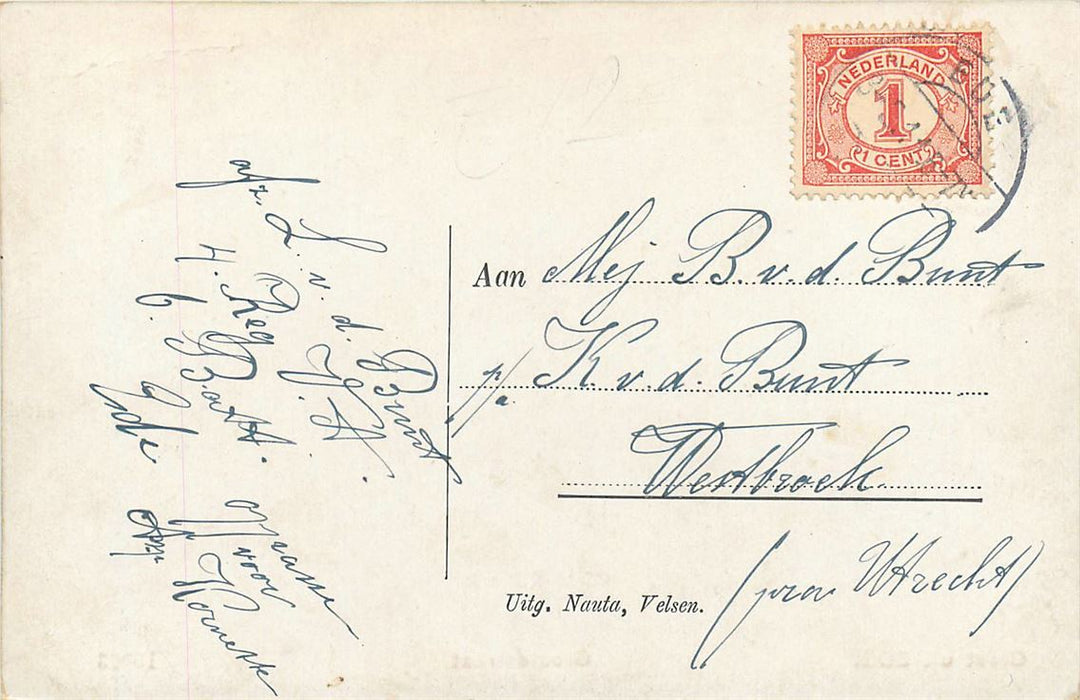 NEDERLAND
1
1 CENT
EDE
Aan Mej B. v. d. Bunt
p/a. K. v. d. Bunt
Westbroek
(prov Utrecht)
Uitg. Nauta, Velsen.
afz. L. v. d. Bunt
4. Reg. V. A.
6. Batt.
Ede
voor